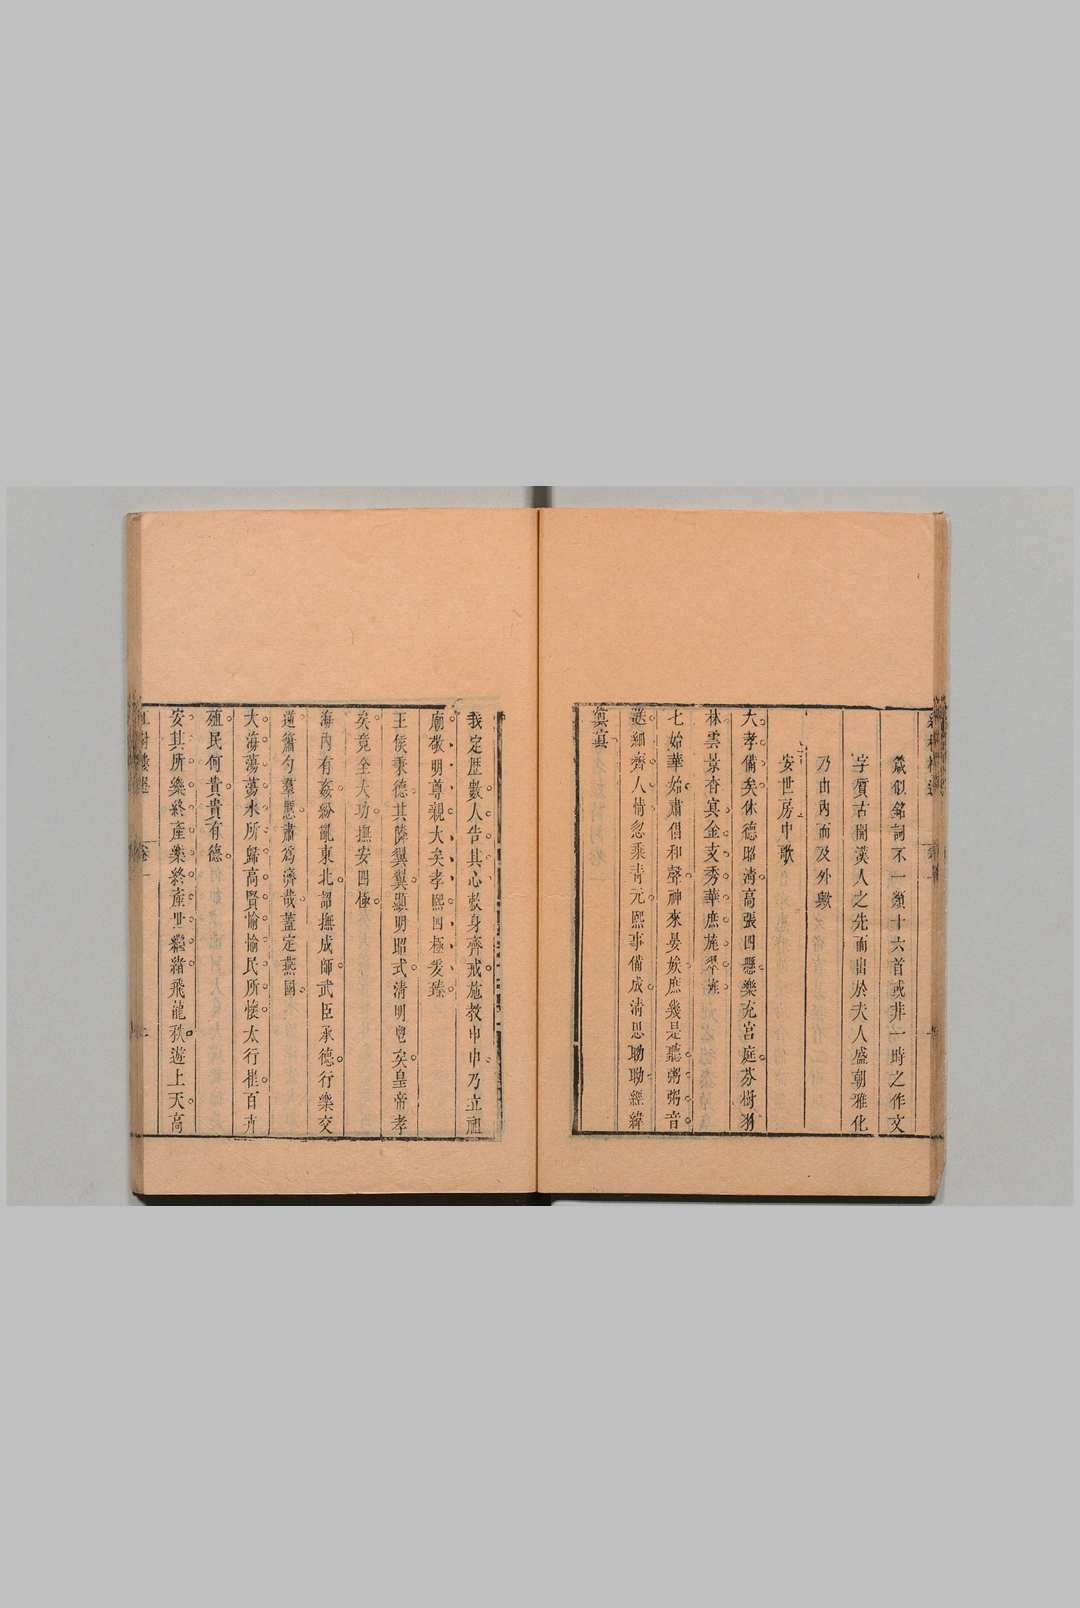 箴似銘詞不一類十六首或非一時之作文
字質古開漢人之先而出於夫人盛朝雅化
乃由內而及外歟
安世房中歌
大孝備矣休德昭清高張四懸樂充宮庭芬樹羽
林雲景杳冥金支秀華庶旄翠旌
七始華始肅倡和聲神來晏娭庶幾是聽粥粥音
送細齊人情忽乘青元熙事備成清思眑眑經緯
冥冥
我定歷數人告其心敕身齊戒施教申申乃立祖
廟敬明尊親大矣孝熙四極爰臻
王侯秉德其隣翼翼顯明昭式清明鬯矣皇帝孝
矣竟全大功撫安四極
海內有姦紛亂東北詔撫成師武臣承德行樂交
逆簫勺羣慝肅爲濟哉蓋定燕國
大海蕩蕩水所歸高賢愉愉民所懷太行崔百卉
殖民何貴貴有德
安其所樂終產樂終產世繼緒飛龍秋遊上天高